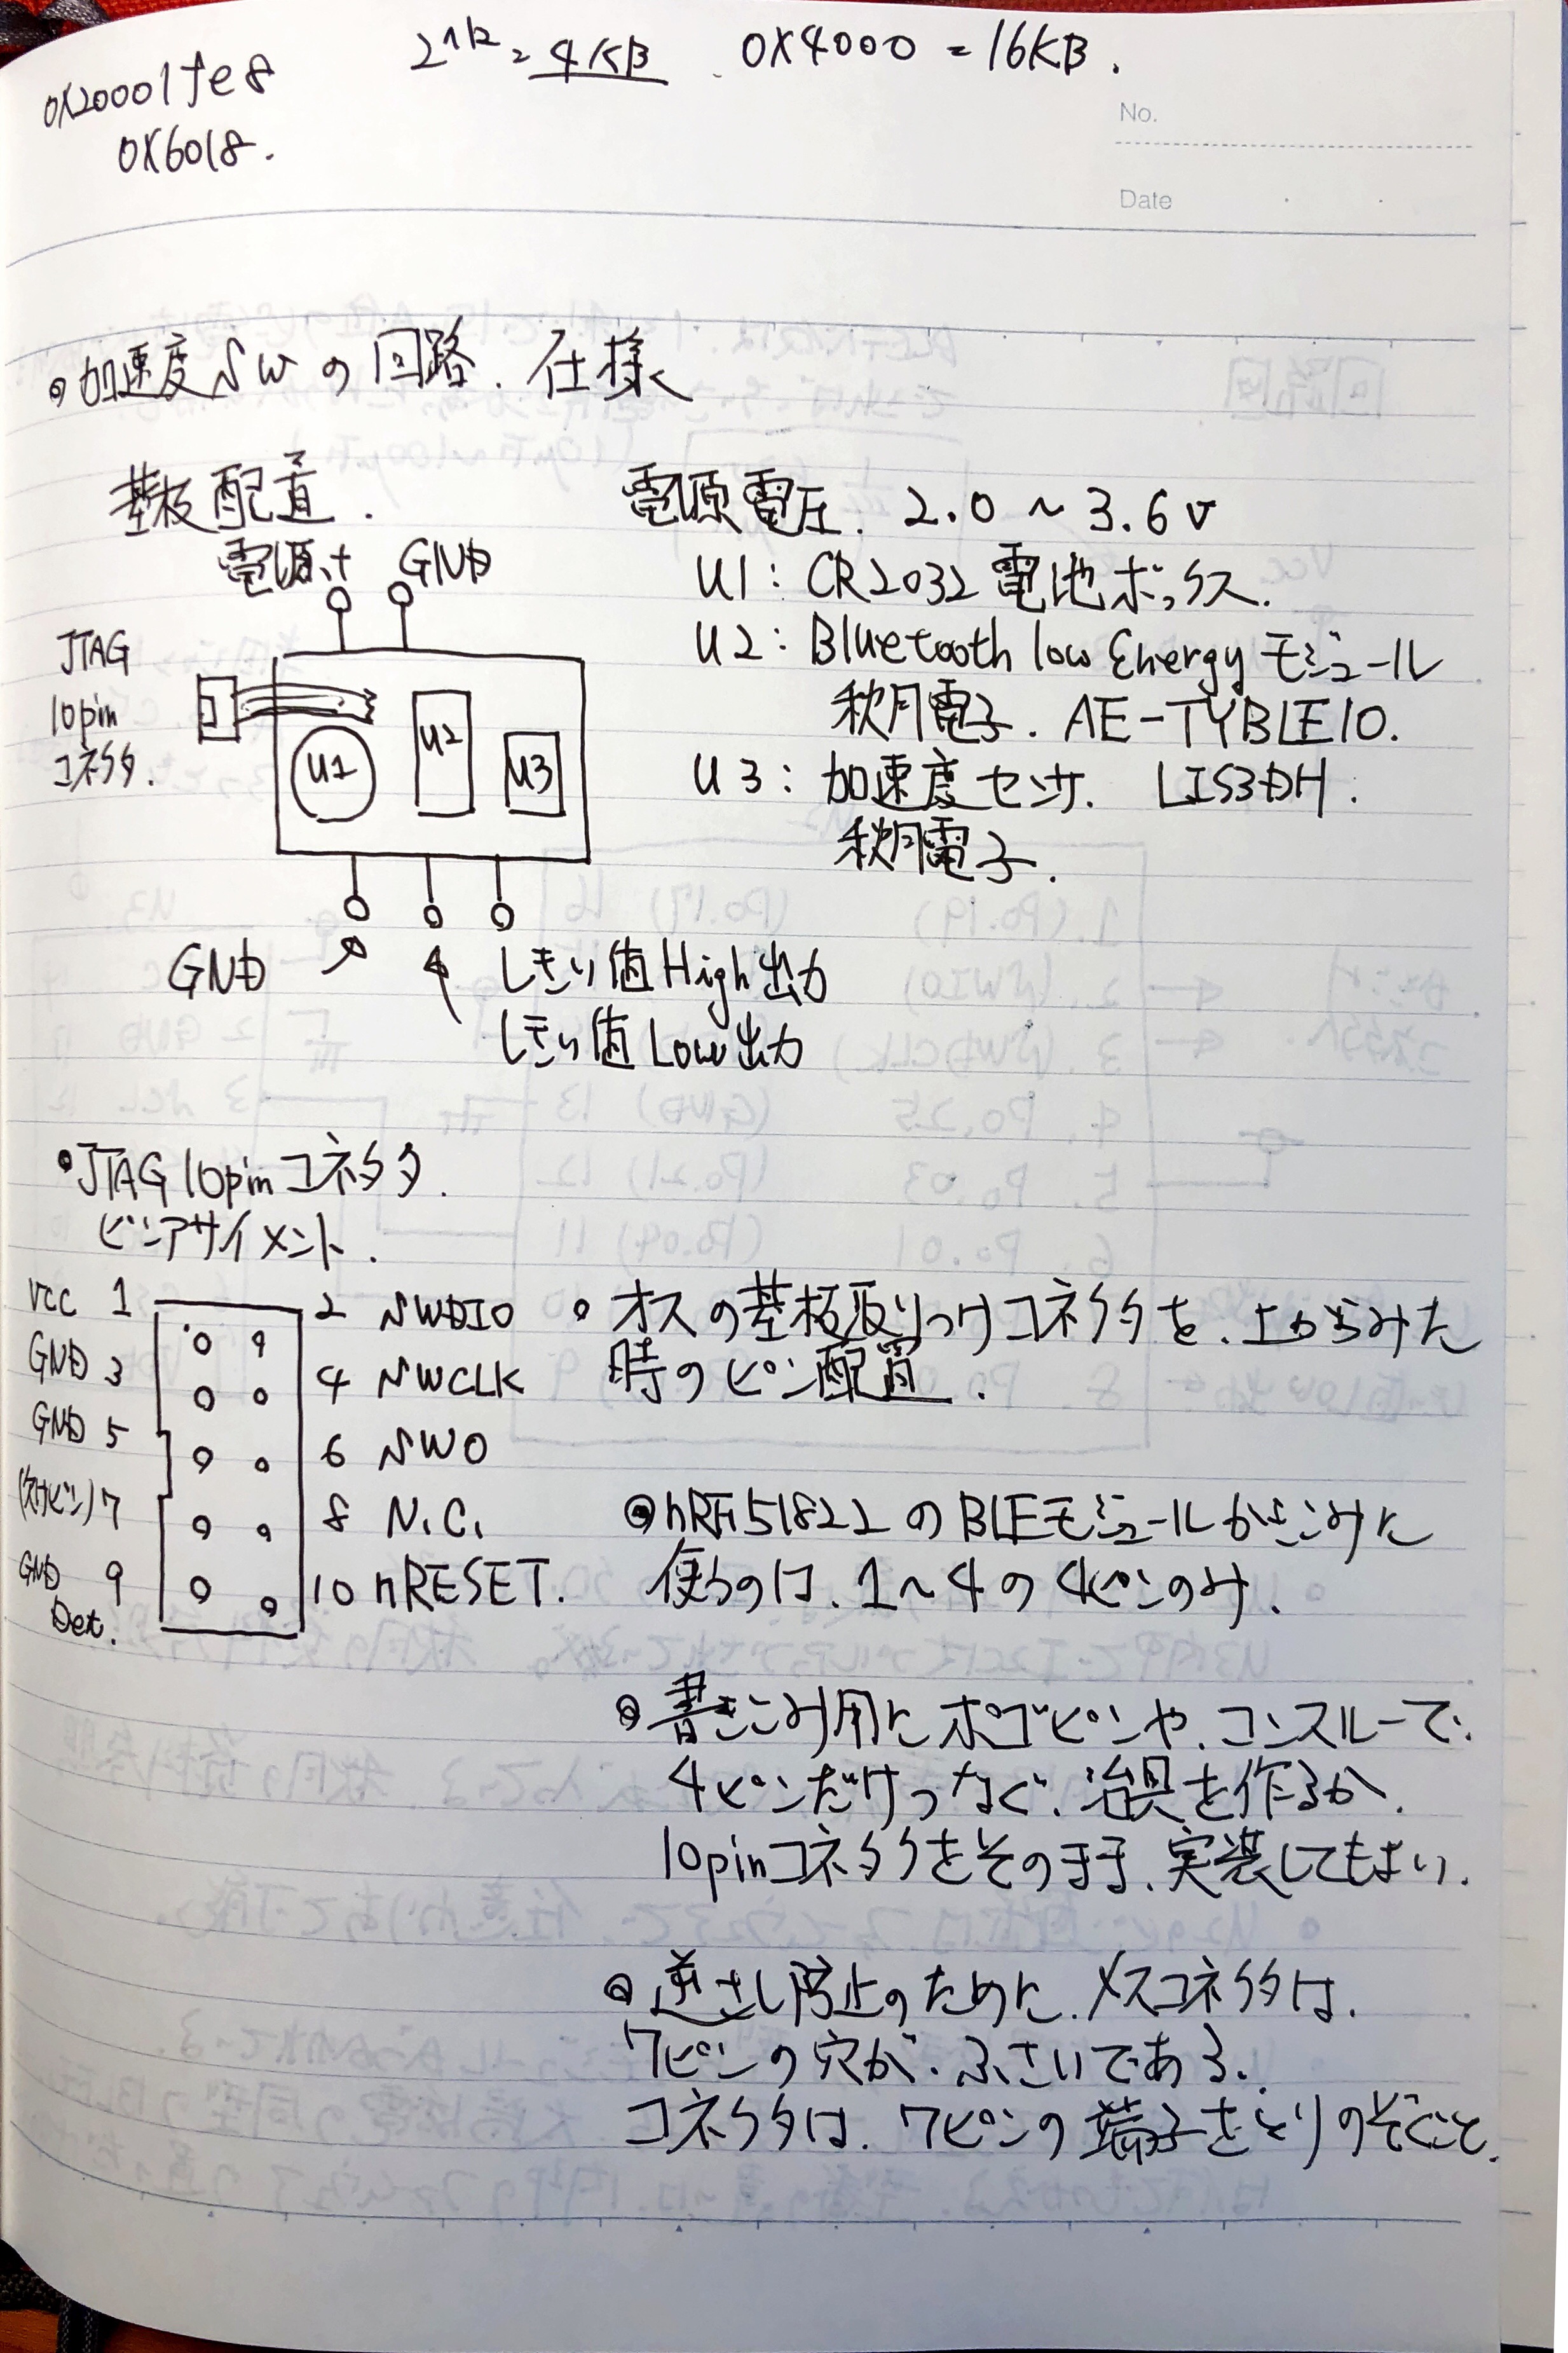 2^12 = 4KB 0x4000 = 16KB.
0x20001fe8
0x6018.
No.
Date
加速度SWの回路. 仕様
基板配置.
電源+ GND
JTAG
10pin
コネクタ.
U1
U2
U3
GND
しきい値High出力
しきい値Low出力
電源電圧. 2.0 ~ 3.6V
U1: CR2032電池ボックス.
U2: Bluetooth low Energyモジュール
秋月電子. AE-TYBLE10.
U3: 加速度センサ. LIS3DH.
秋月電子.
JTAG 10pinコネクタ.
ピンアサイメント.
VCC 1 2 SWDIO
GND 3 4 SWCLK
GND 5 6 SWO
(欠けピン) 7 8 N.C.
GND 9 10 nRESET.
Det.
オスの基板取りつけコネクタを、上からみた
時のピン配置.
nRF51822のBLEモジュールかきこみに
使うのは、1~4の4ピンのみ.
書きこみ用にポゴピンや、コンスルーで.
4ピンだけつなぐ、治具を作るか、
10pinコネクタをそのまま、実装してもよい.
逆さし防止のために、メスコネクタは、
7ピンの穴が、ふさいである.
コネクタは、7ピンの端子をとりのぞくこと.